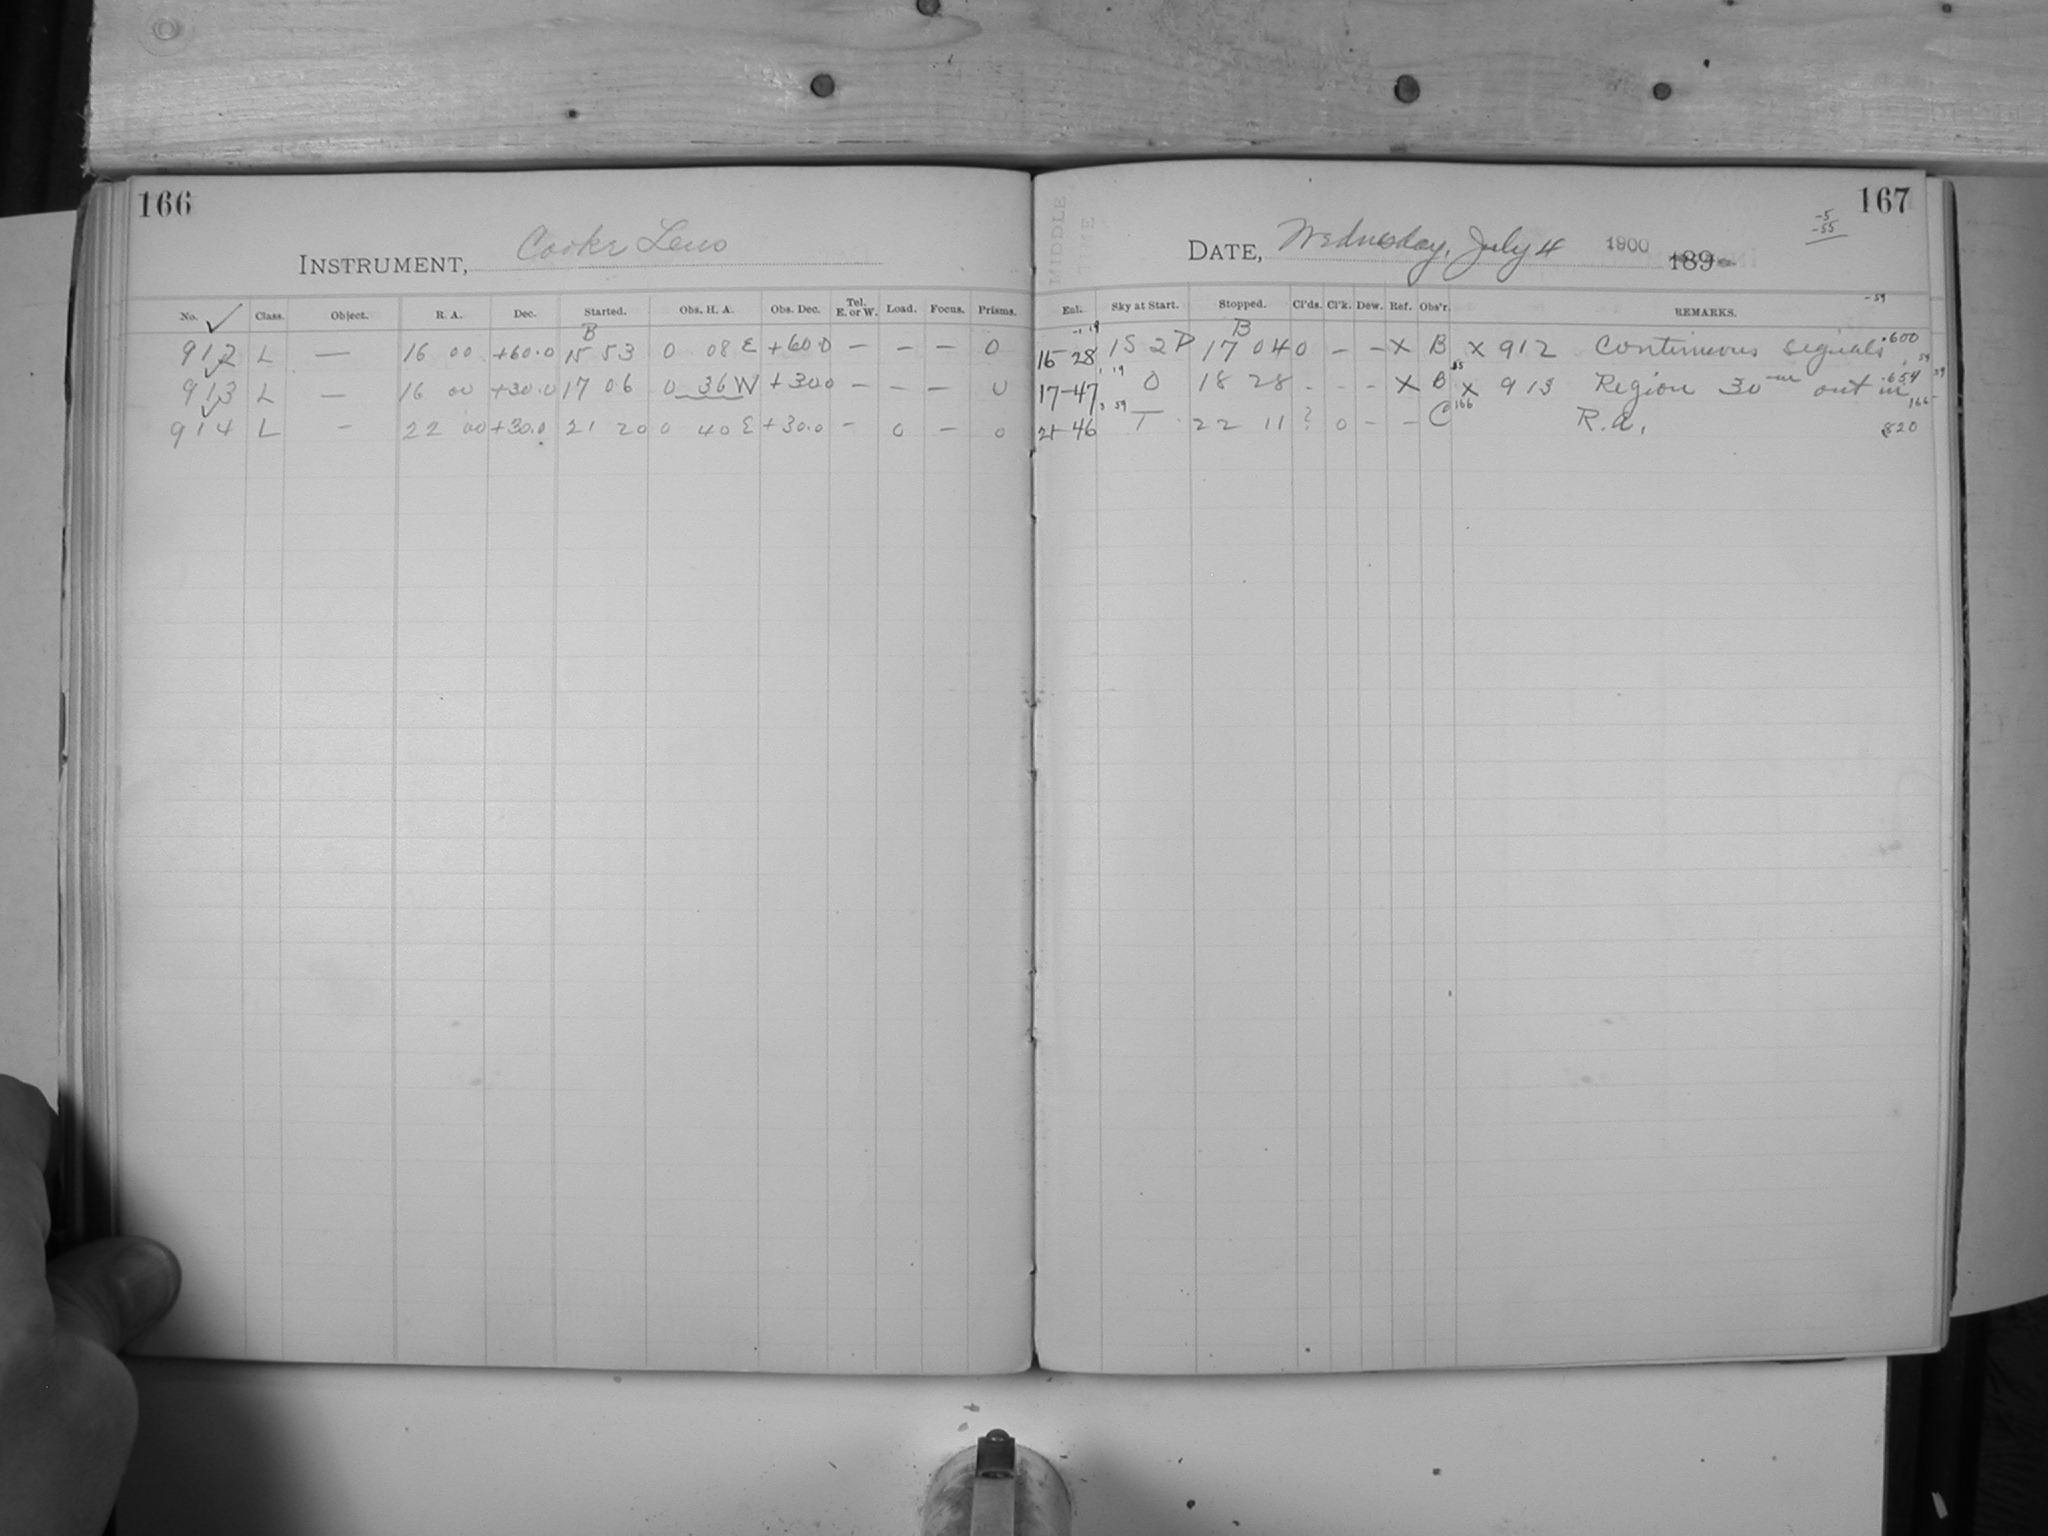 166
INSTRUMENT, Cooke Lens
No. Class. Object. R. A. Dec. Started. Obs. H. A. Obs. Dec. Tel. E. or W. Load. Focus. Prisms.
B
912 L — 16 00 +60.0 15 53 0 08 E +60.0 — — — 0
913 L — 16 00 +30.0 17 06 0 36 W +30.0 — — — 0
914 L — 22 00 +30.0 21 20 0 40 E +30.0 — 0 — 0
167
-5
-55
MIDDLE TIME
DATE, Wednesday, July 4 1900 189
Ent. Sky at Start. Stopped. Cl'ds. Cl'k. Dew. Ref. Obs'r. REMARKS.
-59
-1 19 B
16-28 1S 2P 17 04 0 — — X B X 912 Continuous signals .600
1 19 55 59
17-47 0 18 28 - - - X B X 913 Region 30 m out in .654 59
3 59 166 166
21-46 T 22 11 ? 0 — — C R.A. 820